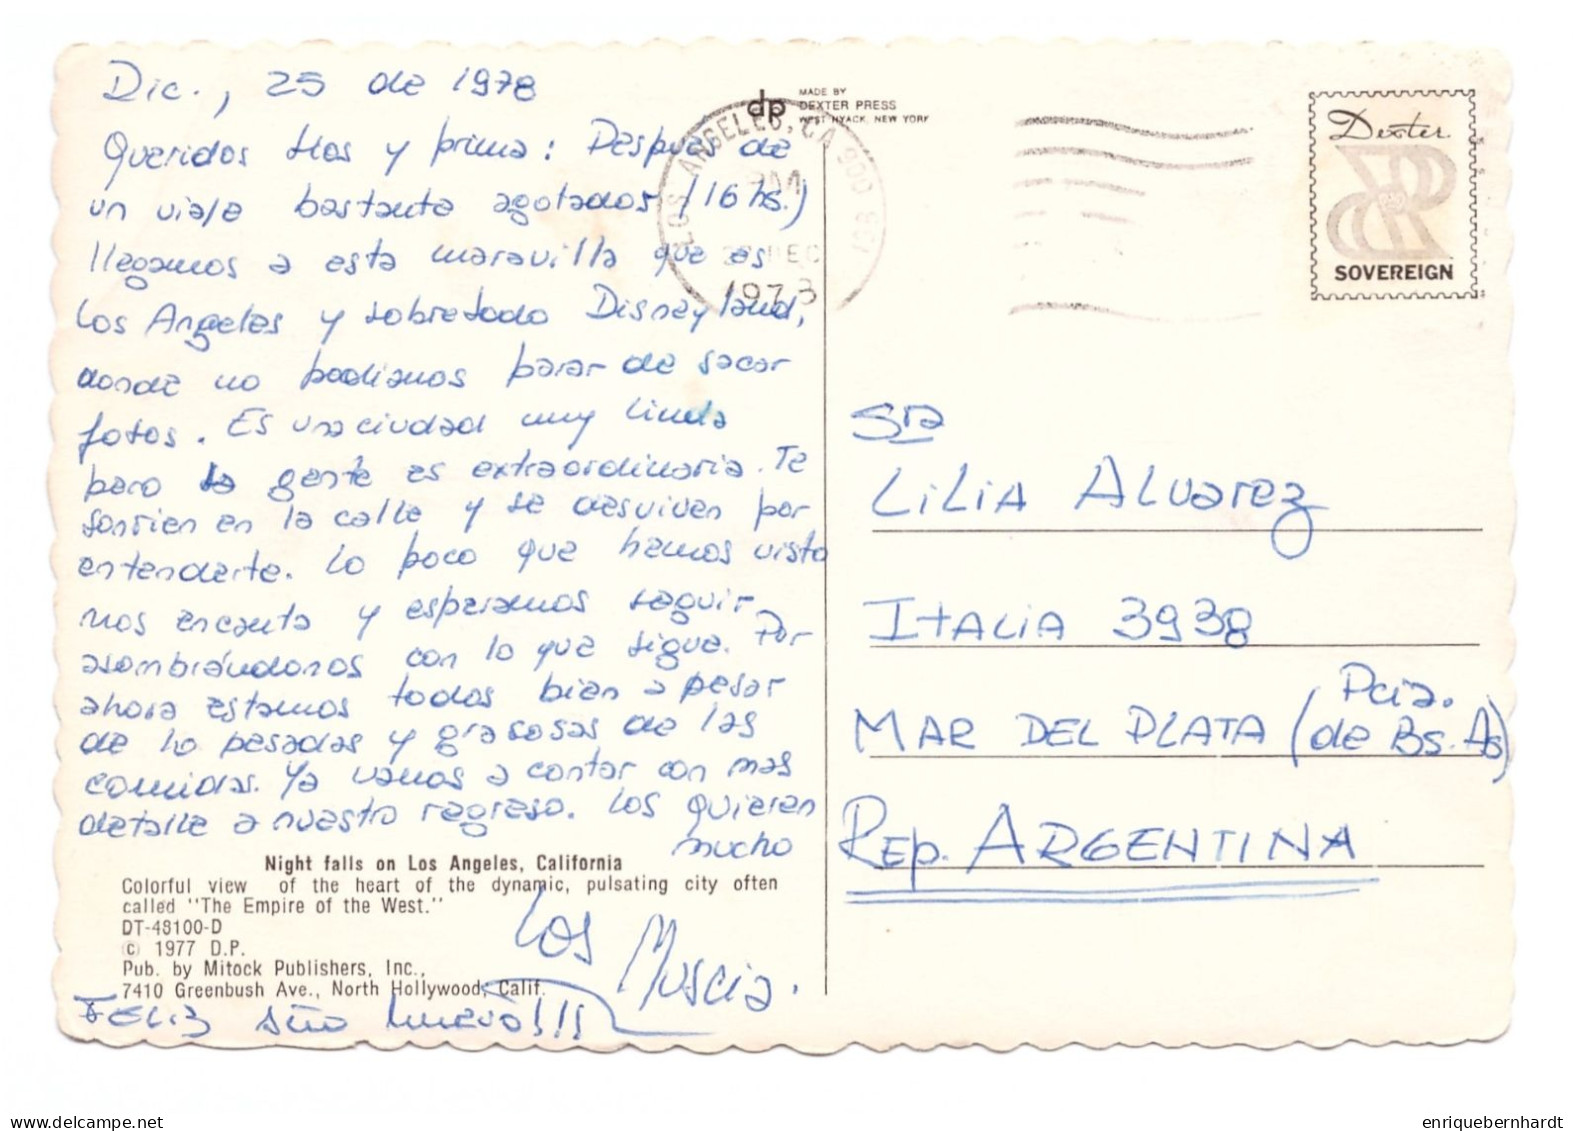 Dic., 25 de 1978
Queridos tíos y prima: Después de
un viaje bastante agotador (16 hs.)
llegamos a esta maravilla que es
Los Angeles y sobretodo Disneyland,
donde no podíamos parar de sacar
fotos. Es una ciudad muy linda
pero la gente es extraordinaria. Te
sonrien en la calle y se desviven por
entenderte. Lo poco que hemos visto
nos encanta y esperamos seguir
asombrándonos con lo que sigue. Por
ahora estamos todos bien a pesar
de lo pesadas y grasosas de las
comidas. Ya vamos a contar con mas
detalle a nuestro regreso. Los quieren
mucho
Los Muscia.
FELIZ año nuevo!!!
Night falls on Los Angeles, California
Colorful view of the heart of the dynamic, pulsating city often
called "The Empire of the West."
DT-48100-D
© 1977 D.P.
Pub. by Mitock Publishers, Inc.,
7410 Greenbush Ave., North Hollywood, Calif.
dp
MADE BY
DEXTER PRESS
WEST NYACK, NEW YORK
LOS ANGELES, CA 900
PM
DEC
1978
Dexter
SOVEREIGN
Sra
LiLiA Alvarez
ITALiA 3938
MAR DEL PLATA (Pcia. de Bs. As)
Rep. ARGENTINA
enriquebernhardt